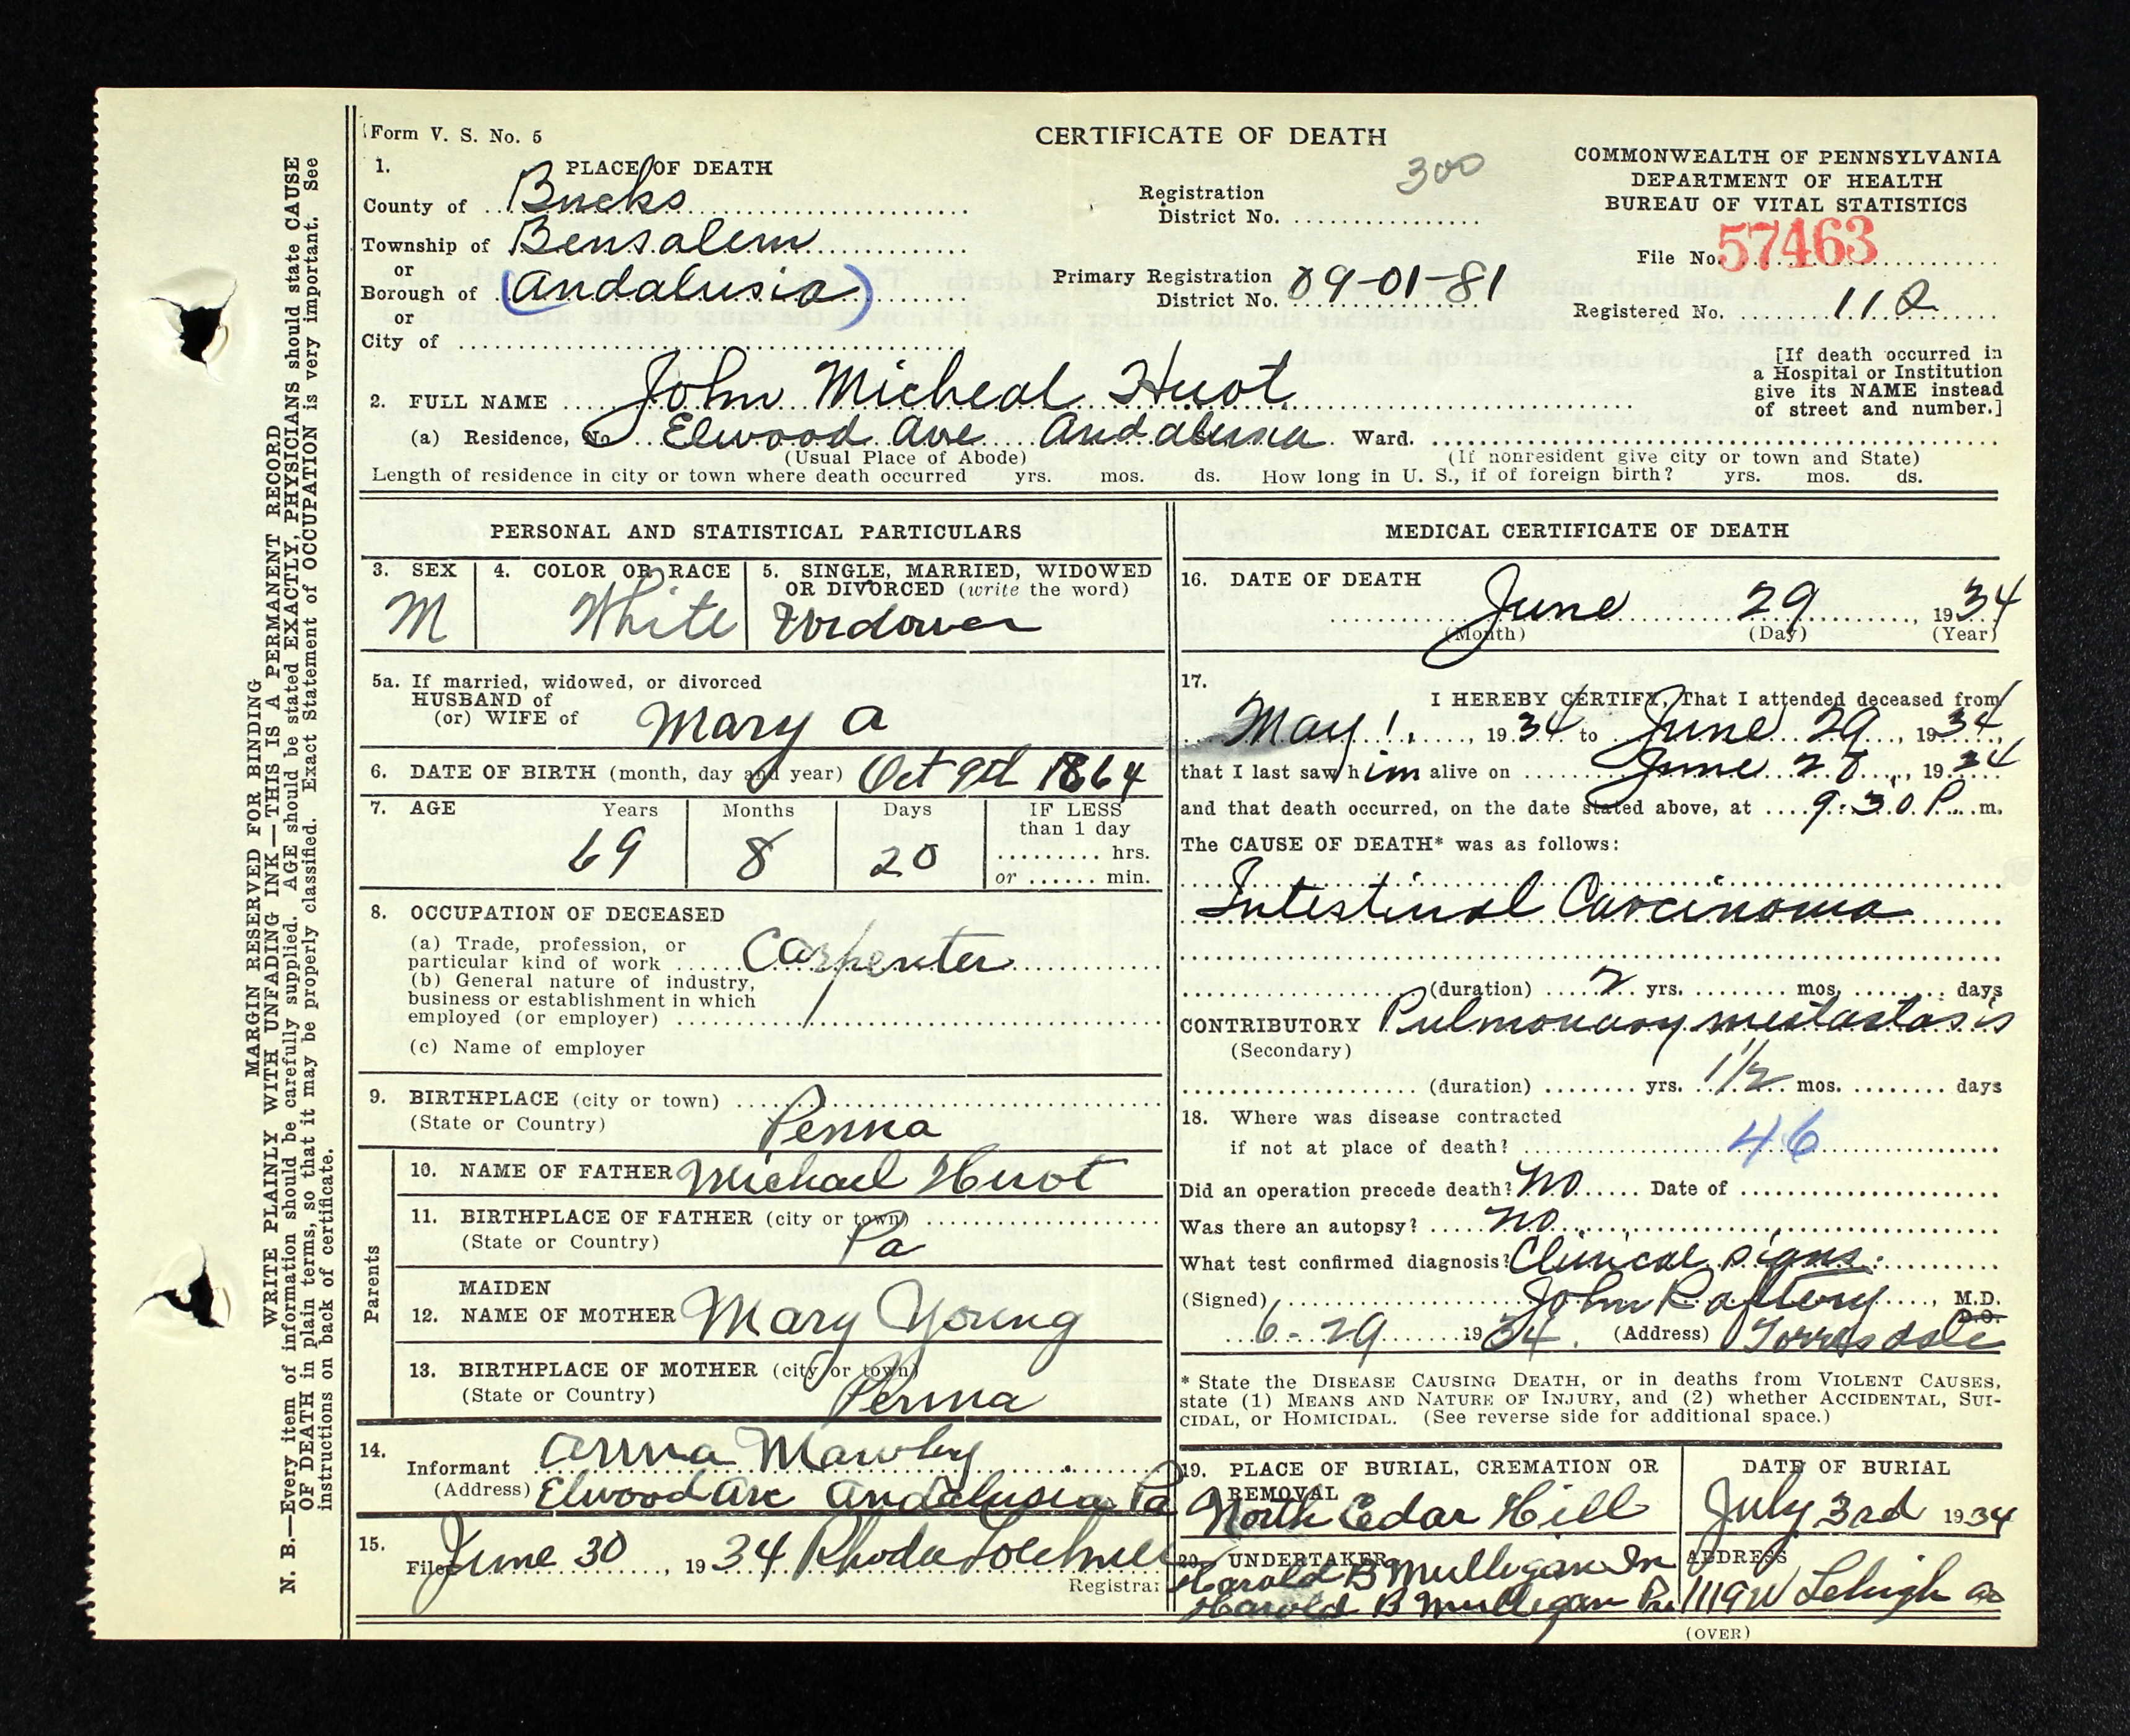 Form V. S. No. 5
CERTIFICATE OF DEATH
COMMONWEALTH OF PENNSYLVANIA
DEPARTMENT OF HEALTH
BUREAU OF VITAL STATISTICS
1. PLACE OF DEATH
County of Bucks
Township of Bensalem
or
Borough of (Andalusia)
or
City of
300
Registration
District No.
Primary Registration
District No. 09-01-81
File No. 57463
Registered No. 112
[If death occurred in
a Hospital or Institution
give its NAME instead
of street and number.]
2. FULL NAME John Micheal Huot
(a) Residence, No. Elwood Ave Andalusia Ward.
(Usual Place of Abode) (If nonresident give city or town and State)
Length of residence in city or town where death occurred yrs. mos. ds. How long in U. S., if of foreign birth? yrs. mos. ds.
PERSONAL AND STATISTICAL PARTICULARS
3. SEX
M
4. COLOR OR RACE
White
5. SINGLE, MARRIED, WIDOWED
OR DIVORCED (write the word)
Widower
5a. If married, widowed, or divorced
HUSBAND of
(or) WIFE of Mary A
6. DATE OF BIRTH (month, day and year) Oct 9th 1864
7. AGE Years Months Days IF LESS
than 1 day
69 8 20 hrs.
or min.
8. OCCUPATION OF DECEASED
(a) Trade, profession, or
particular kind of work Carpenter
(b) General nature of industry,
business or establishment in which
employed (or employer)
(c) Name of employer
9. BIRTHPLACE (city or town)
(State or Country) Penna
Parents
10. NAME OF FATHER Michael Huot
11. BIRTHPLACE OF FATHER (city or town)
(State or Country) Pa
MAIDEN
12. NAME OF MOTHER Mary Young
13. BIRTHPLACE OF MOTHER (city or town)
(State or Country) Penna
14.
Informant Anna Mawby
(Address) Elwood Ave Andalusia Pa
15.
Filed June 30, 1934 Rhoda
Registrar
MEDICAL CERTIFICATE OF DEATH
16. DATE OF DEATH
June 29, 1934
(Month) (Day) (Year)
17.
I HEREBY CERTIFY, That I attended deceased from
May 1, 1934 to June 29, 1934,
that I last saw him alive on June 28, 1934
and that death occurred, on the date stated above, at 9:30 P. m.
The CAUSE OF DEATH* was as follows:
Intestinal Carcinoma
(duration) 2 yrs. mos. days
CONTRIBUTORY Pulmonary metastasis
(Secondary)
(duration) yrs. 1½ mos. days
18. Where was disease contracted
if not at place of death? 46
Did an operation precede death? No Date of
Was there an autopsy? No
What test confirmed diagnosis? Clinical signs.
(Signed) John Raftery, M.D.
D.O.
6-29 1934. (Address) Torresdale
* State the DISEASE CAUSING DEATH, or in deaths from VIOLENT CAUSES,
state (1) MEANS AND NATURE OF INJURY, and (2) whether ACCIDENTAL, SUI-
CIDAL, or HOMICIDAL. (See reverse side for additional space.)
19. PLACE OF BURIAL, CREMATION OR
REMOVAL
North Cedar Hill
DATE OF BURIAL
July 3rd 1934
20. UNDERTAKER
Harold B Mulligan
Harold B Mulligan
ADDRESS
1119 W Lehigh
(OVER)
MARGIN RESERVED FOR BINDING
WRITE PLAINLY WITH UNFADING INK—THIS IS A PERMANENT RECORD
N. B.—Every item of information should be carefully supplied. AGE should be stated EXACTLY, PHYSICIANS should state CAUSE
OF DEATH in plain terms, so that it may be properly classified. Exact Statement of OCCUPATION is very important. See
instructions on back of certificate.